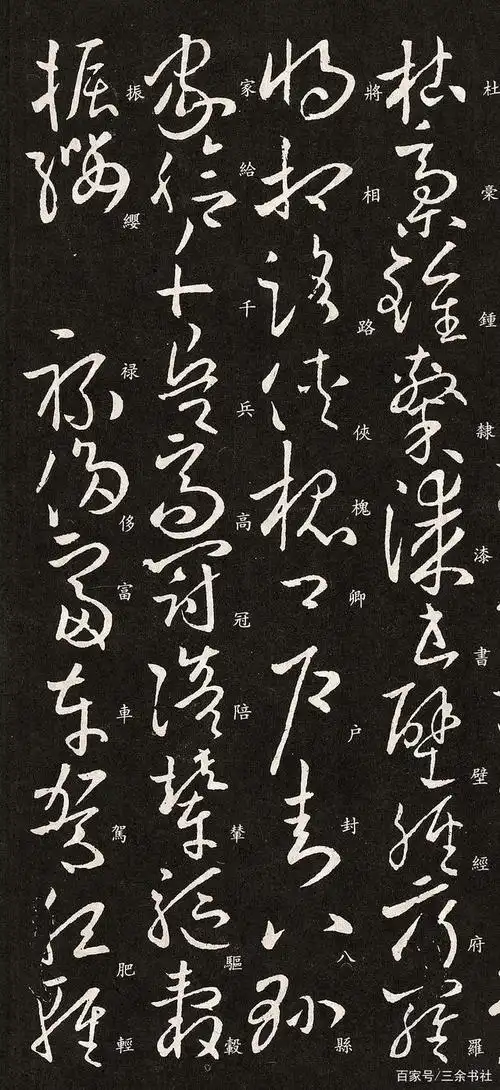 杜稾鍾隸漆書壁經府羅
將相路俠槐卿户封八縣
家給千兵高冠陪輦驅轂
振纓禄侈富車駕肥輕
百家号/三余书社